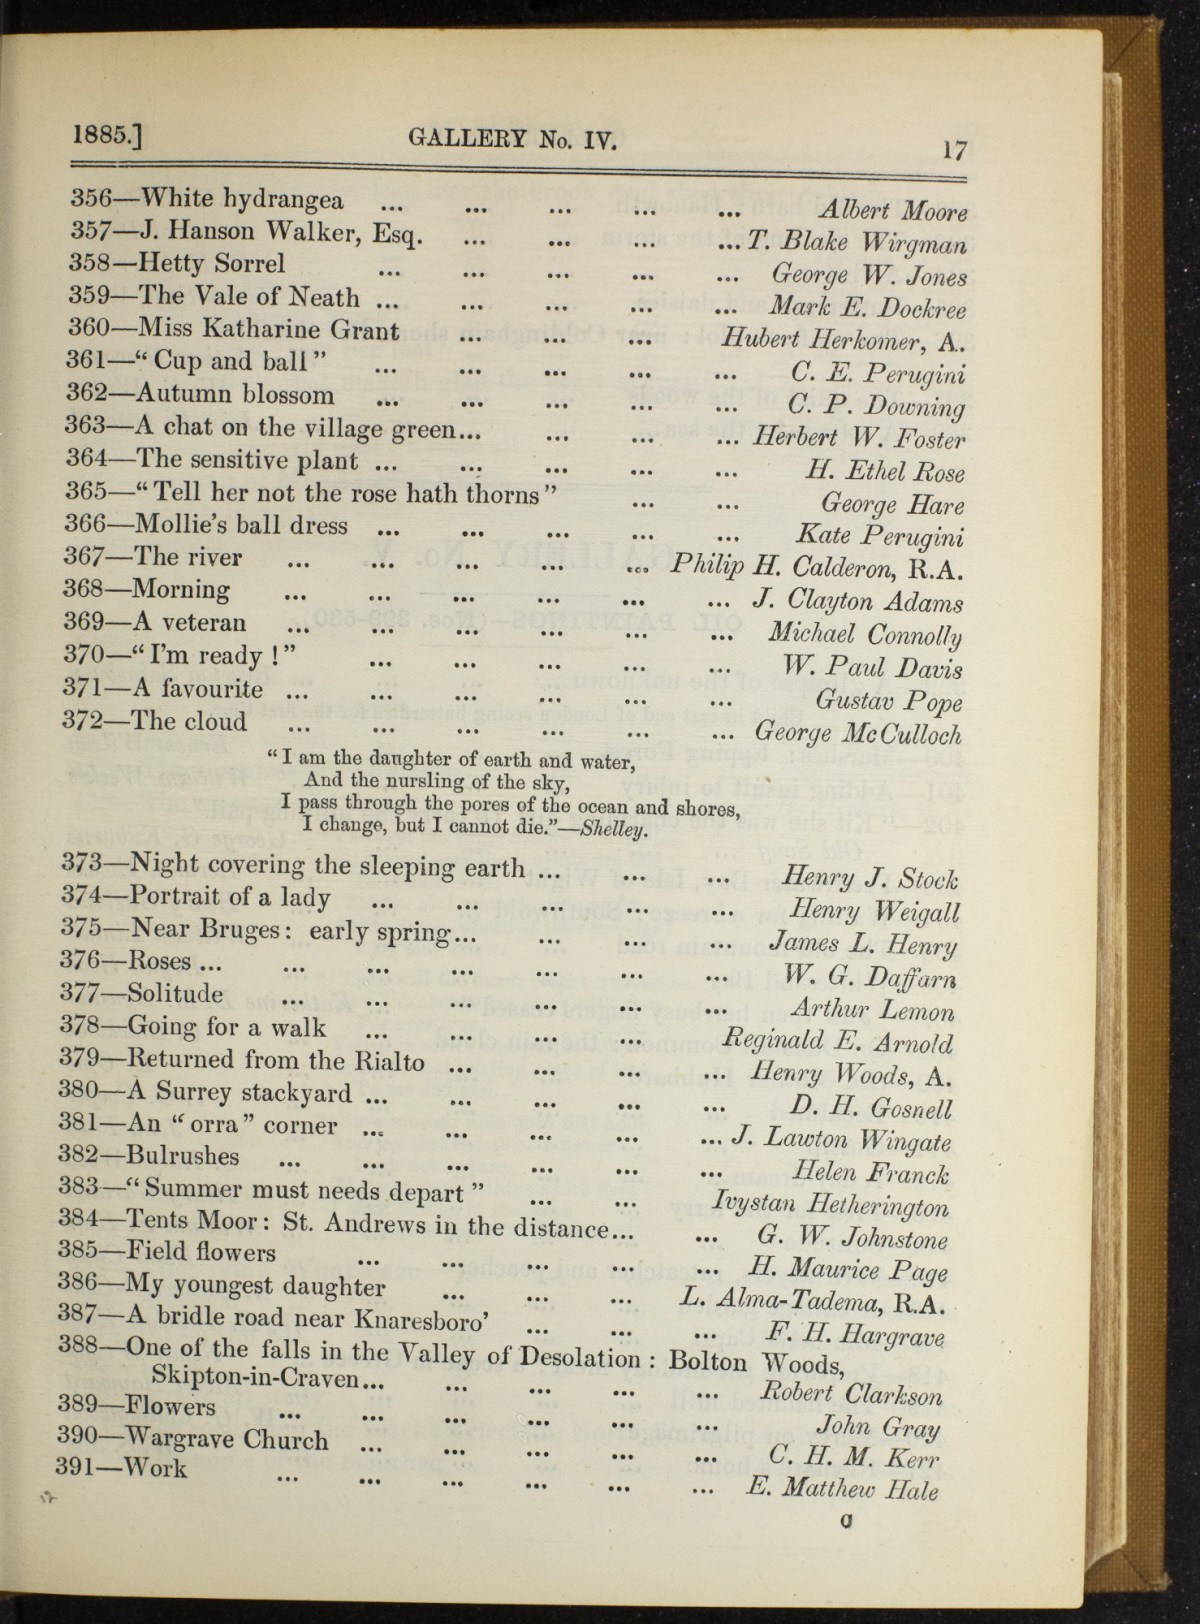 1885.] GALLERY No. IV. 17
356—White hydrangea ... ... ... ... ... Albert Moore
357—J. Hanson Walker, Esq. ... ... ... ... T. Blake Wirgman
358—Hetty Sorrel ... ... ... ... ... George W. Jones
359—The Vale of Neath ... ... ... ... ... Mark E. Dockree
360—Miss Katharine Grant ... ... ... Hubert Herkomer, A.
361—“Cup and ball” ... ... ... ... ... C. E. Perugini
362—Autumn blossom ... ... ... ... ... C. P. Downing
363—A chat on the village green... ... ... ... Herbert W. Foster
364—The sensitive plant ... ... ... ... ... H. Ethel Rose
365—“Tell her not the rose hath thorns” ... ... George Hare
366—Mollie's ball dress ... ... ... ... ... Kate Perugini
367—The river ... ... ... ... ... Philip H. Calderon, R.A.
368—Morning ... ... ... ... ... ... J. Clayton Adams
369—A veteran ... ... ... ... ... ... Michael Connolly
370—“I'm ready !” ... ... ... ... ... W. Paul Davis
371—A favourite ... ... ... ... ... ... Gustav Pope
372—The cloud ... ... ... ... ... ... George McCulloch
“I am the daughter of earth and water,
And the nursling of the sky,
I pass through the pores of the ocean and shores,
I change, but I cannot die.”—Shelley.
373—Night covering the sleeping earth ... ... ... Henry J. Stock
374—Portrait of a lady ... ... ... ... ... Henry Weigall
375—Near Bruges: early spring... ... ... ... James L. Henry
376—Roses ... ... ... ... ... ... ... W. G. Daffarn
377—Solitude ... ... ... ... ... ... Arthur Lemon
378—Going for a walk ... ... ... ... Reginald E. Arnold
379—Returned from the Rialto ... ... ... ... Henry Woods, A.
380—A Surrey stackyard ... ... ... ... ... D. H. Gosnell
381—An “orra” corner ... ... ... ... ... J. Lawton Wingate
382—Bulrushes ... ... ... ... ... ... Helen Franck
383—“Summer must needs depart” ... ... Ivystan Hetherington
384—Tents Moor: St. Andrews in the distance... ... G. W. Johnstone
385—Field flowers ... ... ... ... ... H. Maurice Page
386—My youngest daughter ... ... ... L. Alma-Tadema, R.A.
387—A bridle road near Knaresboro' ... ... ... F. H. Hargrave
388—One of the falls in the Valley of Desolation: Bolton Woods,
Skipton-in-Craven... ... ... ... ... Robert Clarkson
389—Flowers ... ... ... ... ... ... John Gray
390—Wargrave Church ... ... ... ... ... C. H. M. Kerr
391—Work ... ... ... ... ... ... E. Matthew Hale